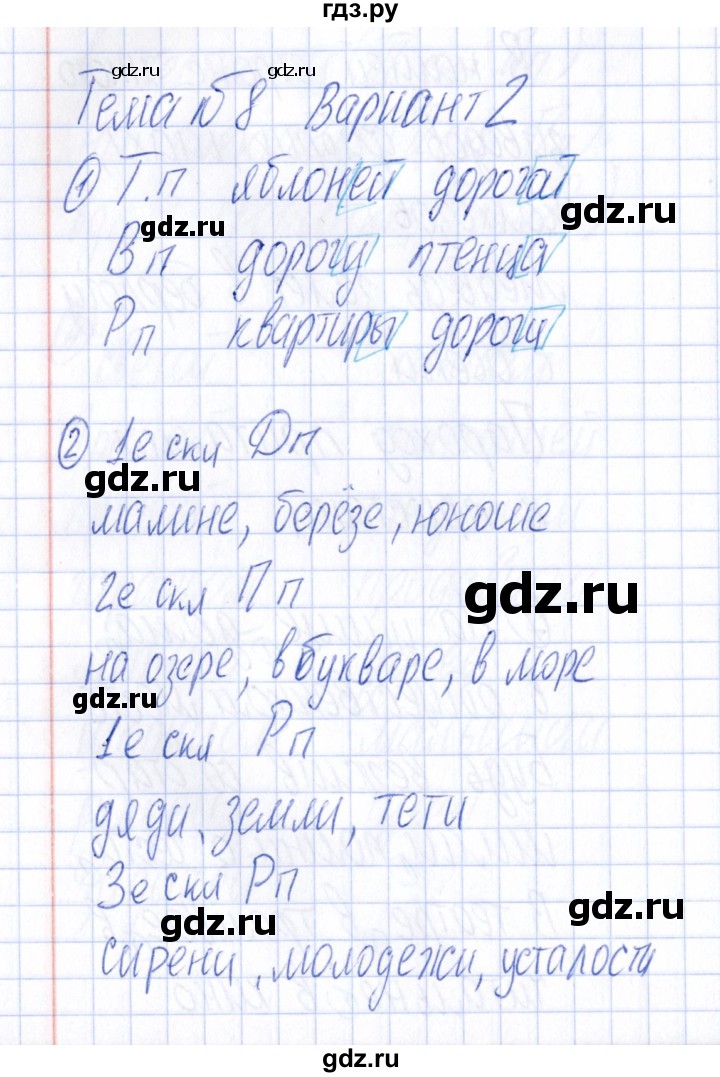 гдз.ру
gdz.ru gdz.ru
Тема №8 Вариант 2
① Т.п яблоней дорогой
gdz.ru gdz.ru
Вп дорогу птенца
Рп квартиры дороги
gdz.ru gdz.ru
② 1е скл Дп
gdz.ru
малине, берёзе, юноше
2е скл Пп
gdz.ru
на озере, в букваре, в море
gdz.ru
1е скл Рп
дяди, земли, тети
3е скл Рп
gdz.ru gdz.ru
сирени, молодежи, усталости
gdz.ru